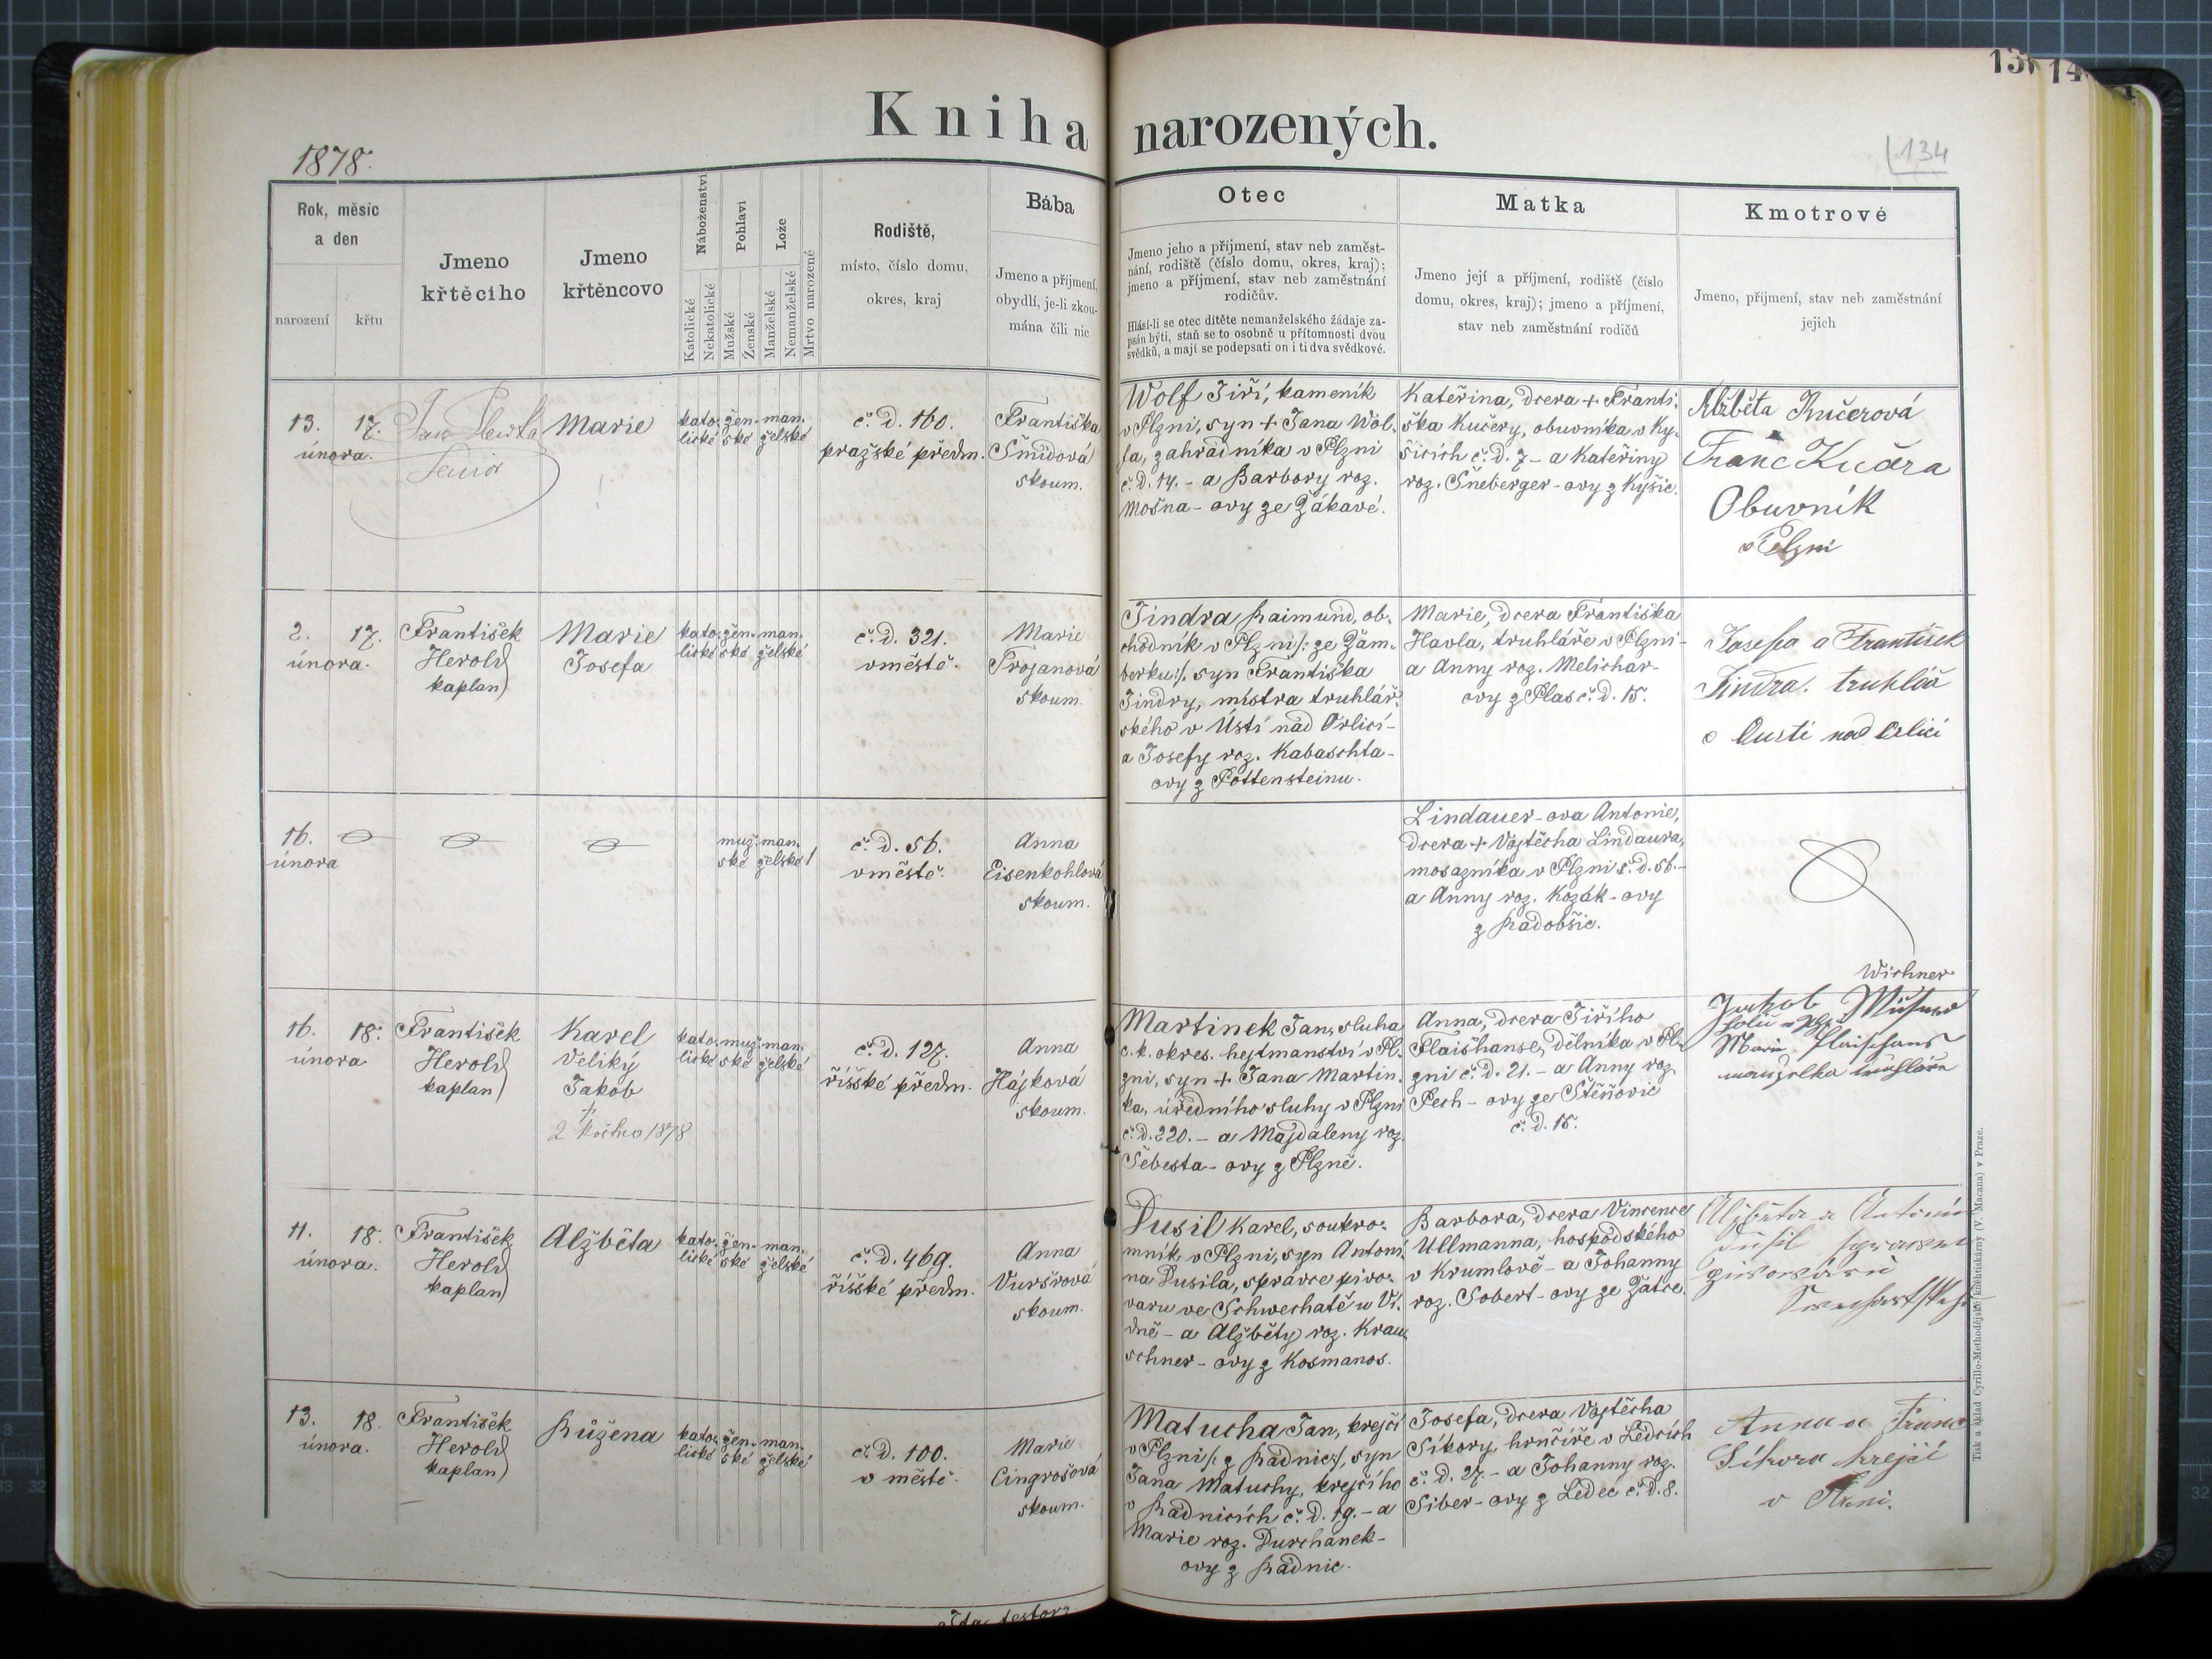 Kniha narozených.
1878.
134
Rok, měsíc
a den
narození
křtu
Jmeno
křtěcího
Jmeno
křtěncovo
Náboženství
Katolické
Nekatolické
Pohlaví
Mužské
Ženské
Lože
Manželské
Nemanželské
Mrtvo narozené
Rodiště,
místo, číslo domu,
okres, kraj
Bába
Jmeno a příjmení,
obydlí, je-li zkou-
mána čili nic
Otec
Jmeno jeho a příjmení, stav neb zaměst-
nání, rodiště (číslo domu, okres, kraj);
jmeno a příjmení, stav neb zaměstnání
rodičův.
Hlásí-li se otec dítěte nemanželského žádaje za-
psán býti, staň se to osobně u přítomnosti dvou
svědků, a mají se podepsati on i ti dva svědkové.
Matka
Jmeno její a příjmení, rodiště (číslo
domu, okres, kraj); jmeno a příjmení,
stav neb zaměstnání rodičů
Kmotrové
Jmeno, příjmení, stav neb zaměstnání
jejich
13. 17.
února.
Marie
kato-
lické
žen-
ské
man-
želské
č. d. 160.
pražské předm.
Františka
Šmídová
skoum.
Wolf Jiří, kameník
v Plzni, syn + Jana Wol-
fa, zahradníka v Plzni
č. d. 14. - a Barbory roz.
Mošna-ovy ze Žákavé.
Kateřina, dcera + Franti-
ška Kučery, obuvníka v Ky-
šicích č. d. 7 - a Kateřiny
roz. Šneberger-ovy z Kyšic.
Alžběta Kučerová
Franc Kučera
Obuvník
v Plzni
2. 17.
února.
František
Herold
kaplan
Marie
Josefa
kato-
lické
žen-
ské
man-
želské
č. d. 321.
v městě.
Marie
Trojanová
skoum.
Jindra Raimund, ob-
chodník v Plzni /: ze Žam-
berku :/, syn Františka
Jindry, mistra truhlář-
ského v Ústí nad Orlicí -
a Josefy roz. Kabaschta-
ovy z Pottensteinu.
Marie, dcera Františka
Havla, truhláře v Plzni -
a Anny roz. Melichar-
ovy z Plas č. d. 15.
Josefa a František
Jindra. truhlář
v Oustí nad Orlicí
16.
února
muž-
ské
man-
želské
1
č. d. 56.
v městě.
Anna
Eisenkohlová
skoum.
Lindauer-ova Antonie,
dcera + Vojtěcha Lindaura,
mosazníka v Plzni č. d. 56. -
a Anny roz. Kozák-ovy
z Radobšic.
16. 18.
února
František
Herold
kaplan
Karel
Veliký
Jakob
†
1878
kato-
lické
muž-
ské
man-
želské
č. d. 127.
říšské předm.
Anna
Hájková
skoum.
Martinek Jan, sluha
c. k. okres. hejtmanství v Pl-
zni, syn + Jana Martin-
ka, úředního sluhy v Plzni
č. d. 220. - a Majdaleny roz.
Šebesta-ovy z Plzně.
Anna, dcera Jiřího
Flaišhanse, dělníka v Pl-
zni č. d. 21. - a Anny roz.
Pech-ovy ze Štěňovic
č. d. 15.
Wichner
Jakob
Marie Flaischans
manželka truhláře
11. 18.
února.
František
Herold
kaplan
Alžběta
kato-
lické
žen-
ské
man-
želské
č. d. 469.
říšské předm.
Anna
Vuršrová
skoum.
Dusil Karel, soukro-
mník v Plzni, syn Antoní-
na Dusila, správce pivo-
varu ve Schwechatě u Ví-
dně - a Alžběty roz. Krau-
schner-ovy z Kosmanos.
Barbora, dcera Vincence
Ullmanna, hospodského
v Krumlově - a Johanny
roz. Sobert-ovy ze Žatce.
Alžběta a Antonín
Dusil
13. 18.
února.
František
Herold
kaplan
Růžena
kato-
lické
žen-
ské
man-
želské
č. d. 100.
v městě.
Marie
Cingrošová
skoum.
Matucha Jan, krejčí
v Plzni /: z Radnic :/, syn
Jana Matuchy, krejčího
v Radnicích č. d. 19. - a
Marie roz. Durchánek-
ovy z Radnic.
Josefa, dcera Vojtěcha
Síkory, hrnčíře v Ledcích
č. d. 27. - a Johanny roz.
Siber-ovy z Ledec č. d. 8.
Anna a Franc
Síkora krejčí
v Plzni.
Tisk a sklad Cyrillo-Methodějské knihtiskárny (V. Macana) v Praze.